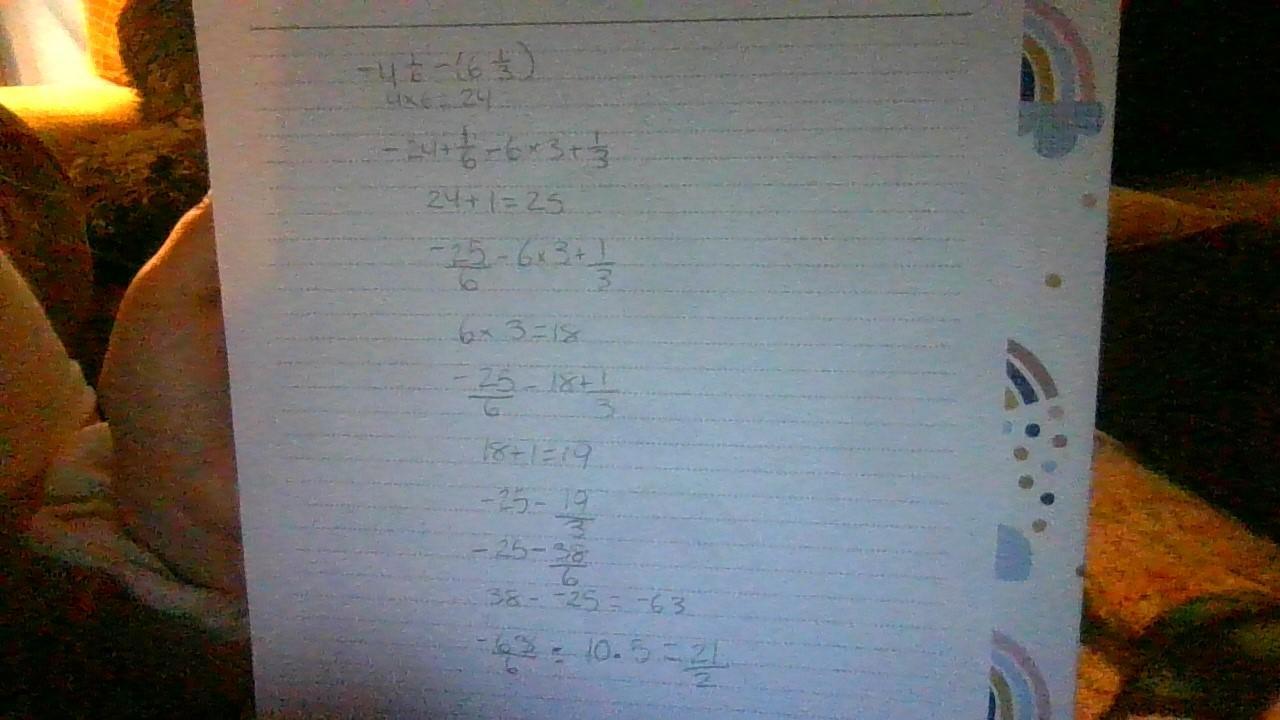 -4 1/6 - (6 1/3)
4×6=24
-24+1/6 - 6×3+1/3
24+1=25
-25/6 - 6×3+1/3
6×3=18
-25/6 - 18+1/3
18+1=19
-25 - 19/3
-25 - 38/6
38 - -25 = -63
-63/6 = 10.5 = 21/2